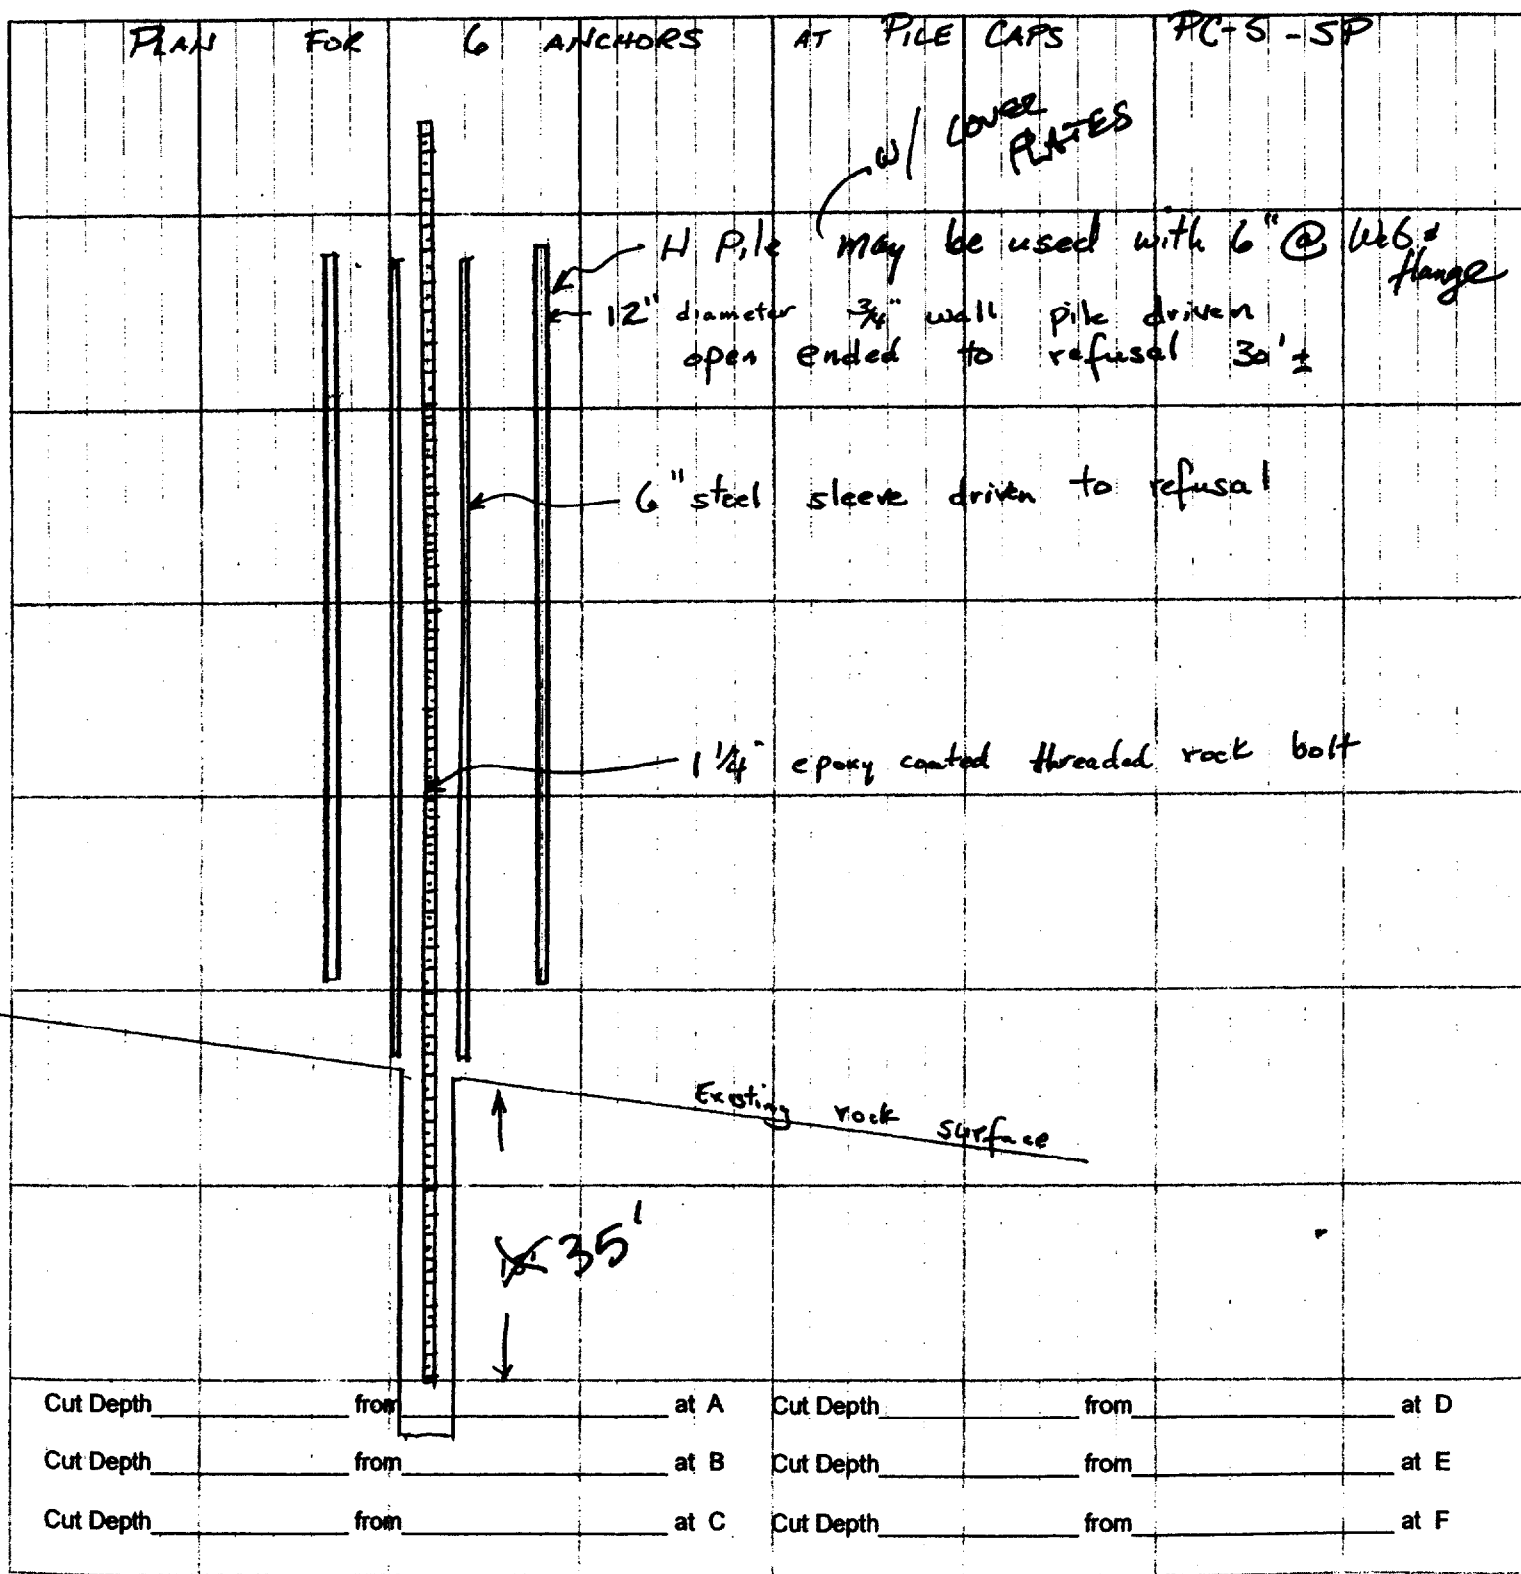 PLAN FOR 6 ANCHORS AT PILE CAPS PC-5-SP
w/ COVER
PLATES
H Pile may be used with 6" @ WEB &
flange
12" diameter 3/4" wall pile driven
open ended to refusal 30'±
6" steel sleeve driven to refusal
1 1/4" epoxy coated threaded rock bolt
Existing rock surface
35'
Cut Depth from at A Cut Depth from at D
Cut Depth from at B Cut Depth from at E
Cut Depth from at C Cut Depth from at F